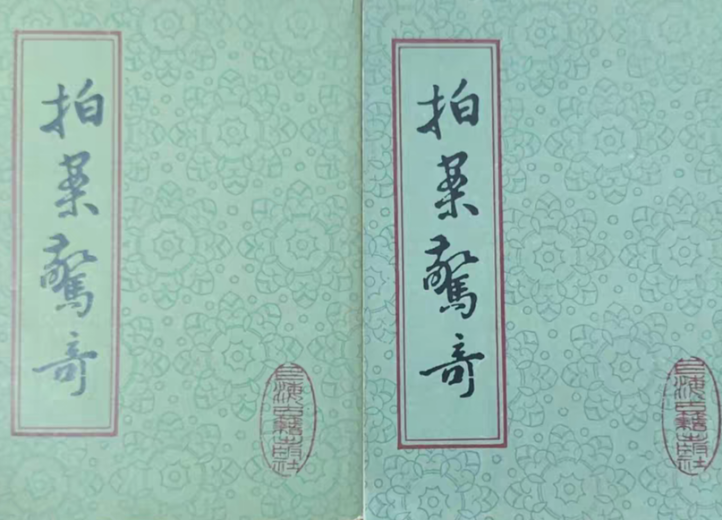 拍案驚奇
上海古籍出版社
拍案驚奇
上海古籍出版社